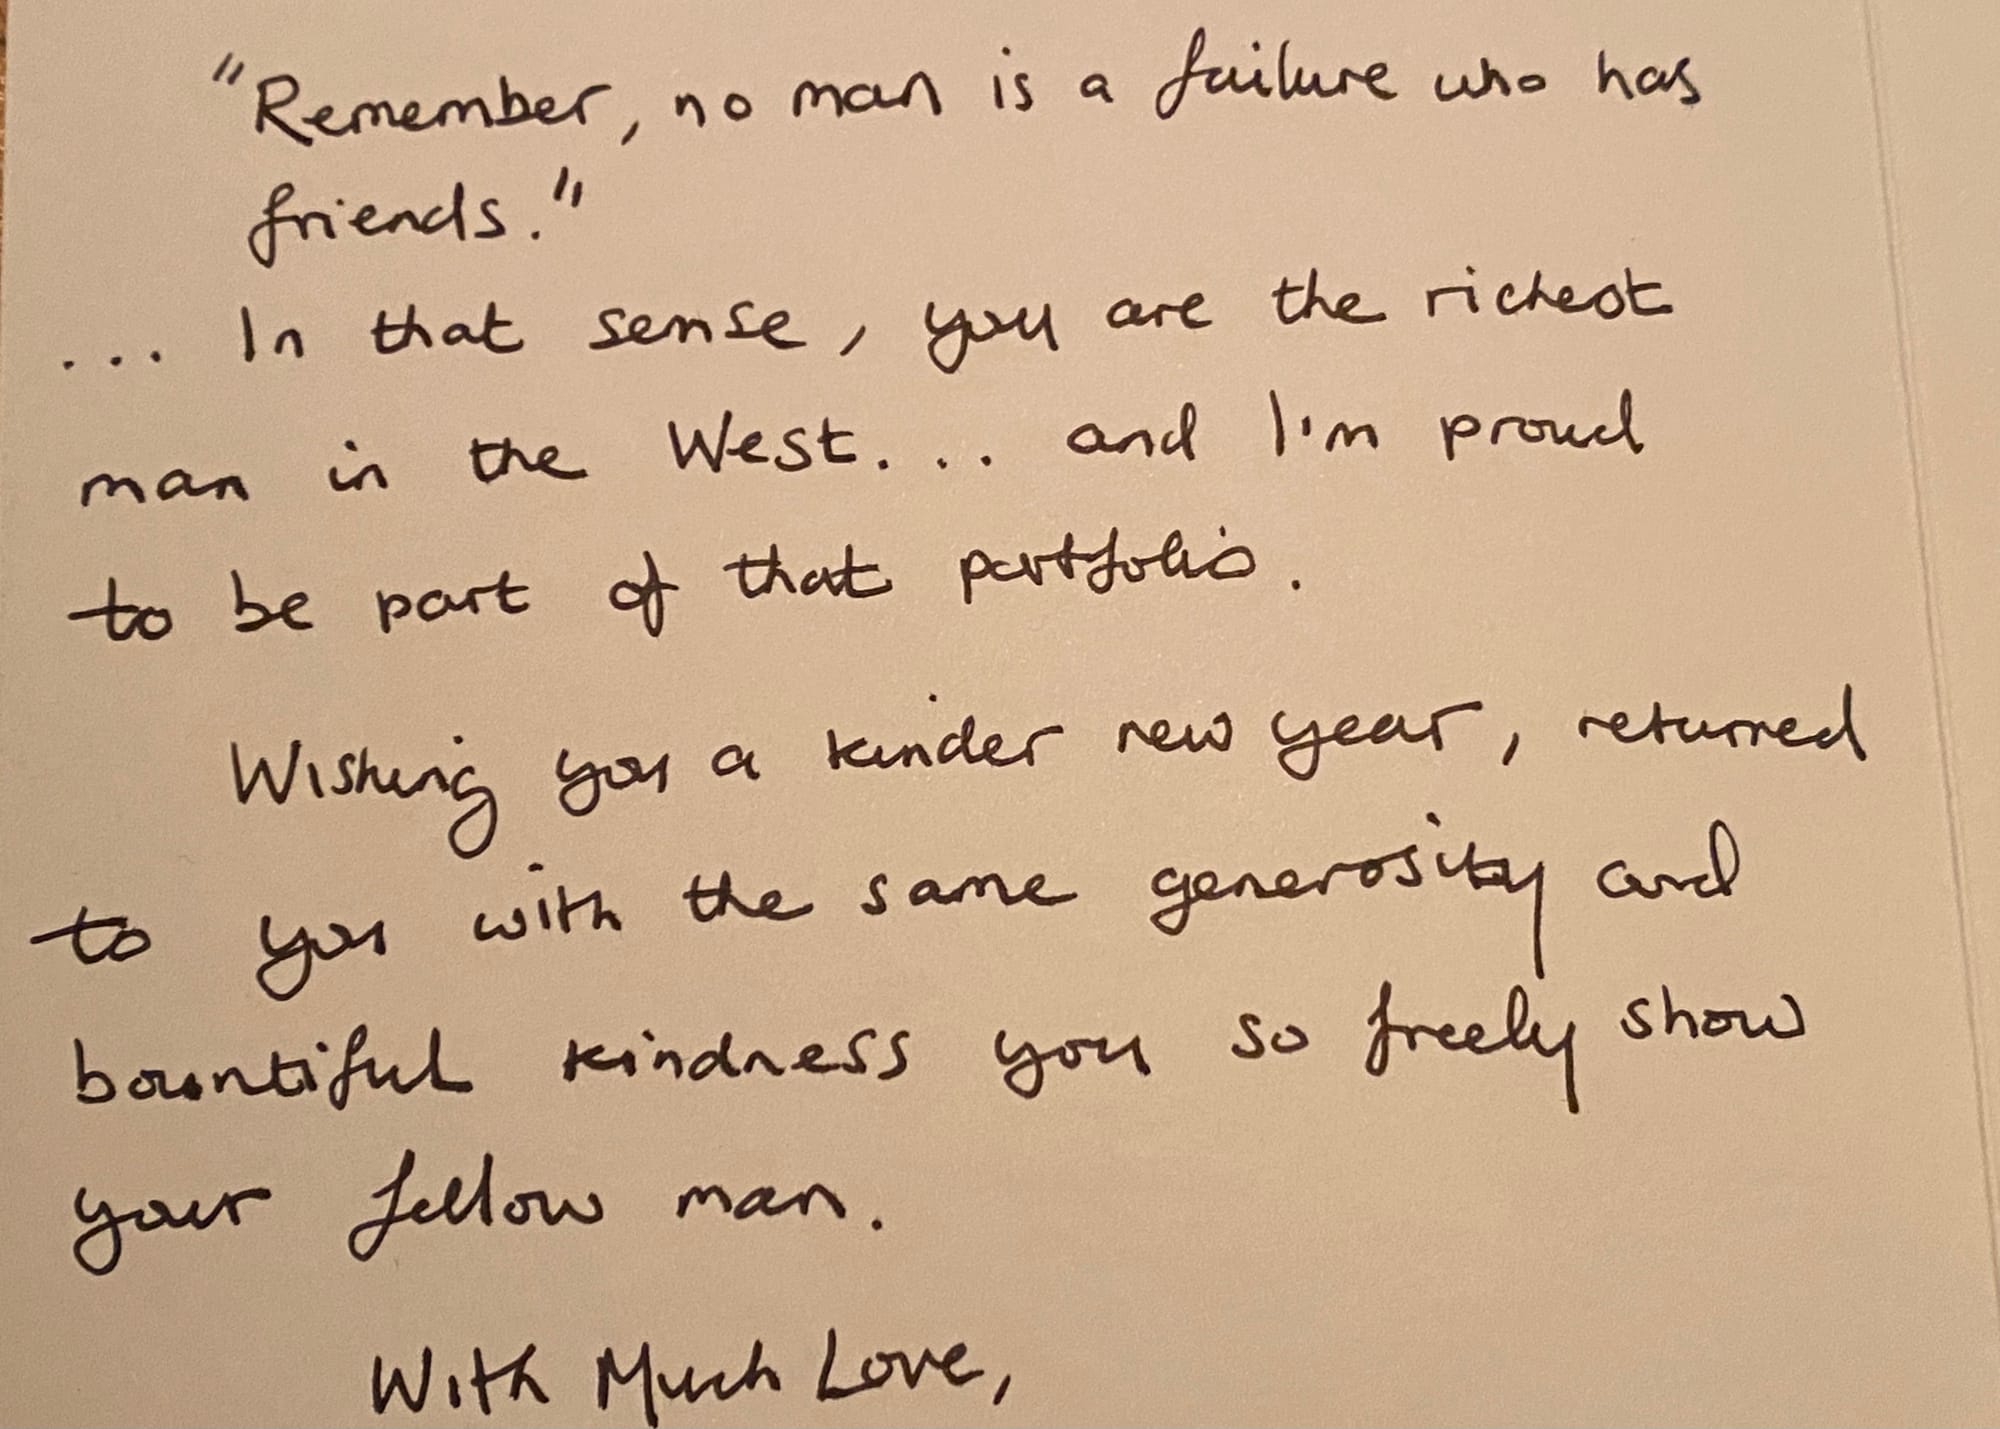 "Remember, no man is a failure who has
friends."
... In that sense, you are the richest
man in the West... and I'm proud
to be part of that portfolio.
Wishing you a kinder new year, returned
to you with the same generosity and
bountiful kindness you so freely show
your fellow man.
With Much Love,